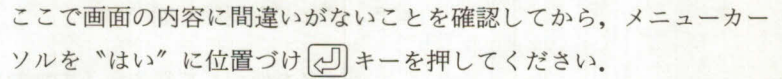 ここで画面の内容に間違いがないことを確認してから，メニューカー
ソルを〝はい〟に位置づけ⏎キーを押してください．